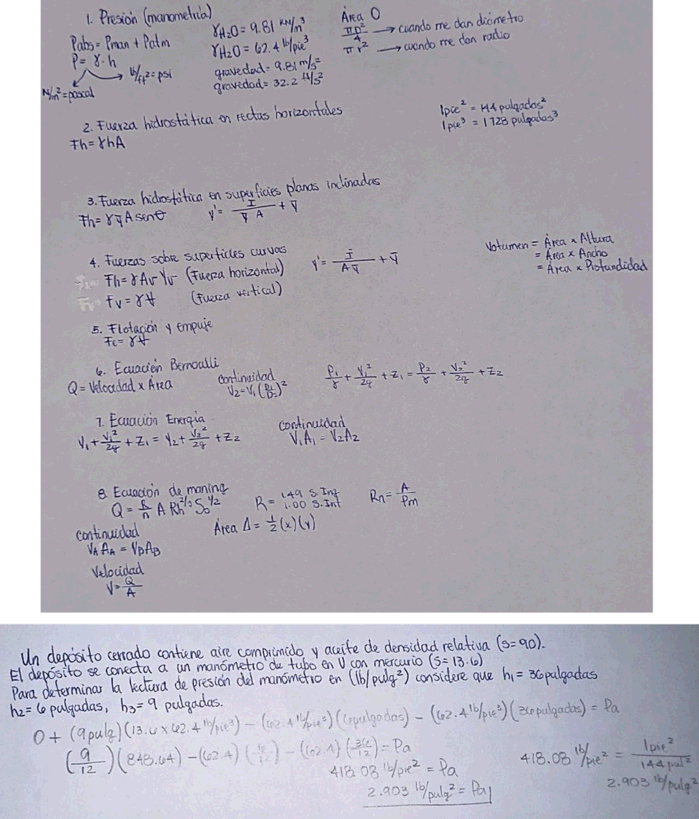 1. Presión (manometría)
Pabs = Pman + Patm
P = γ · h
N/m² = pascal
lb/ft² = psi
γH2O = 9.81 KN/m³
γH2O = 62.4 lb/pie³
gravedad = 9.81 m/s²
gravedad = 32.2 ft/s²
Área O
πD²/4 → cuando me dan diámetro
πr² → cuando me dan radio
2. Fuerza hidrostática en rectas horizontales
Fh = γhA
1pie² = 144 pulgadas²
1pie³ = 1728 pulgadas³
3. Fuerza hidrostática en superficies planas inclinadas
Fh = γȳA senθ
y' = I/ȳA + ȳ
4. Fuerzas sobre superficies curvas
Fh = γAv Yv (Fuerza horizontal)
Fv = γV (Fuerza vertical)
y' = I/Aȳ + ȳ
Volumen = Área x Altura
= Área x Ancho
= Área x Profundidad
5. Flotación y empuje
γV
6. Ecuación Bernoulli
Q = Velocidad x Área
continuidad
P1/γ + V1²/2g + Z1 = P2/γ + V2²/2g + Z2
7. Ecuación Energía
Y1 + V1²/2g + Z1 = Y2 + V2²/2g + Z2
continuidad
V1A1 = V2A2
8. Ecuación de maning
Q = k/n A Rh^2/3 So^1/2
1.49 S.Ing
1.00 S.Int
= A/Pm
continuidad
VA AA = VB AB
Área Δ = 1/2 (x)(y)
Velocidad
V = Q/A
Un depósito cerrado contiene aire comprimido y aceite de densidad relativa (S=90).
El depósito se conecta a un manómetro de tubo en U con mercurio (S=13.6)
Para determinar la lectura de presión del manómetro en (lb/pulg²) considere que h1 = 36pulgadas
h2 = 6 pulgadas, h3 = 9 pulgadas.
0 + (9pulg)(13.6 x 62.4 lb/pie³) − (62.4 lb/pie³)(6pulgadas) − (62.4 lb/pie³)(36pulgadas) = Pa
(9/12)(848.64) − (62.4)(6/12) − (62.4)(36/12) = Pa
418.08 lb/pie² = Pa
2.903 lb/pulg² = Pa
418.08 lb/pie² = 1pie²/144 pul²
2.903 lb/pulg²